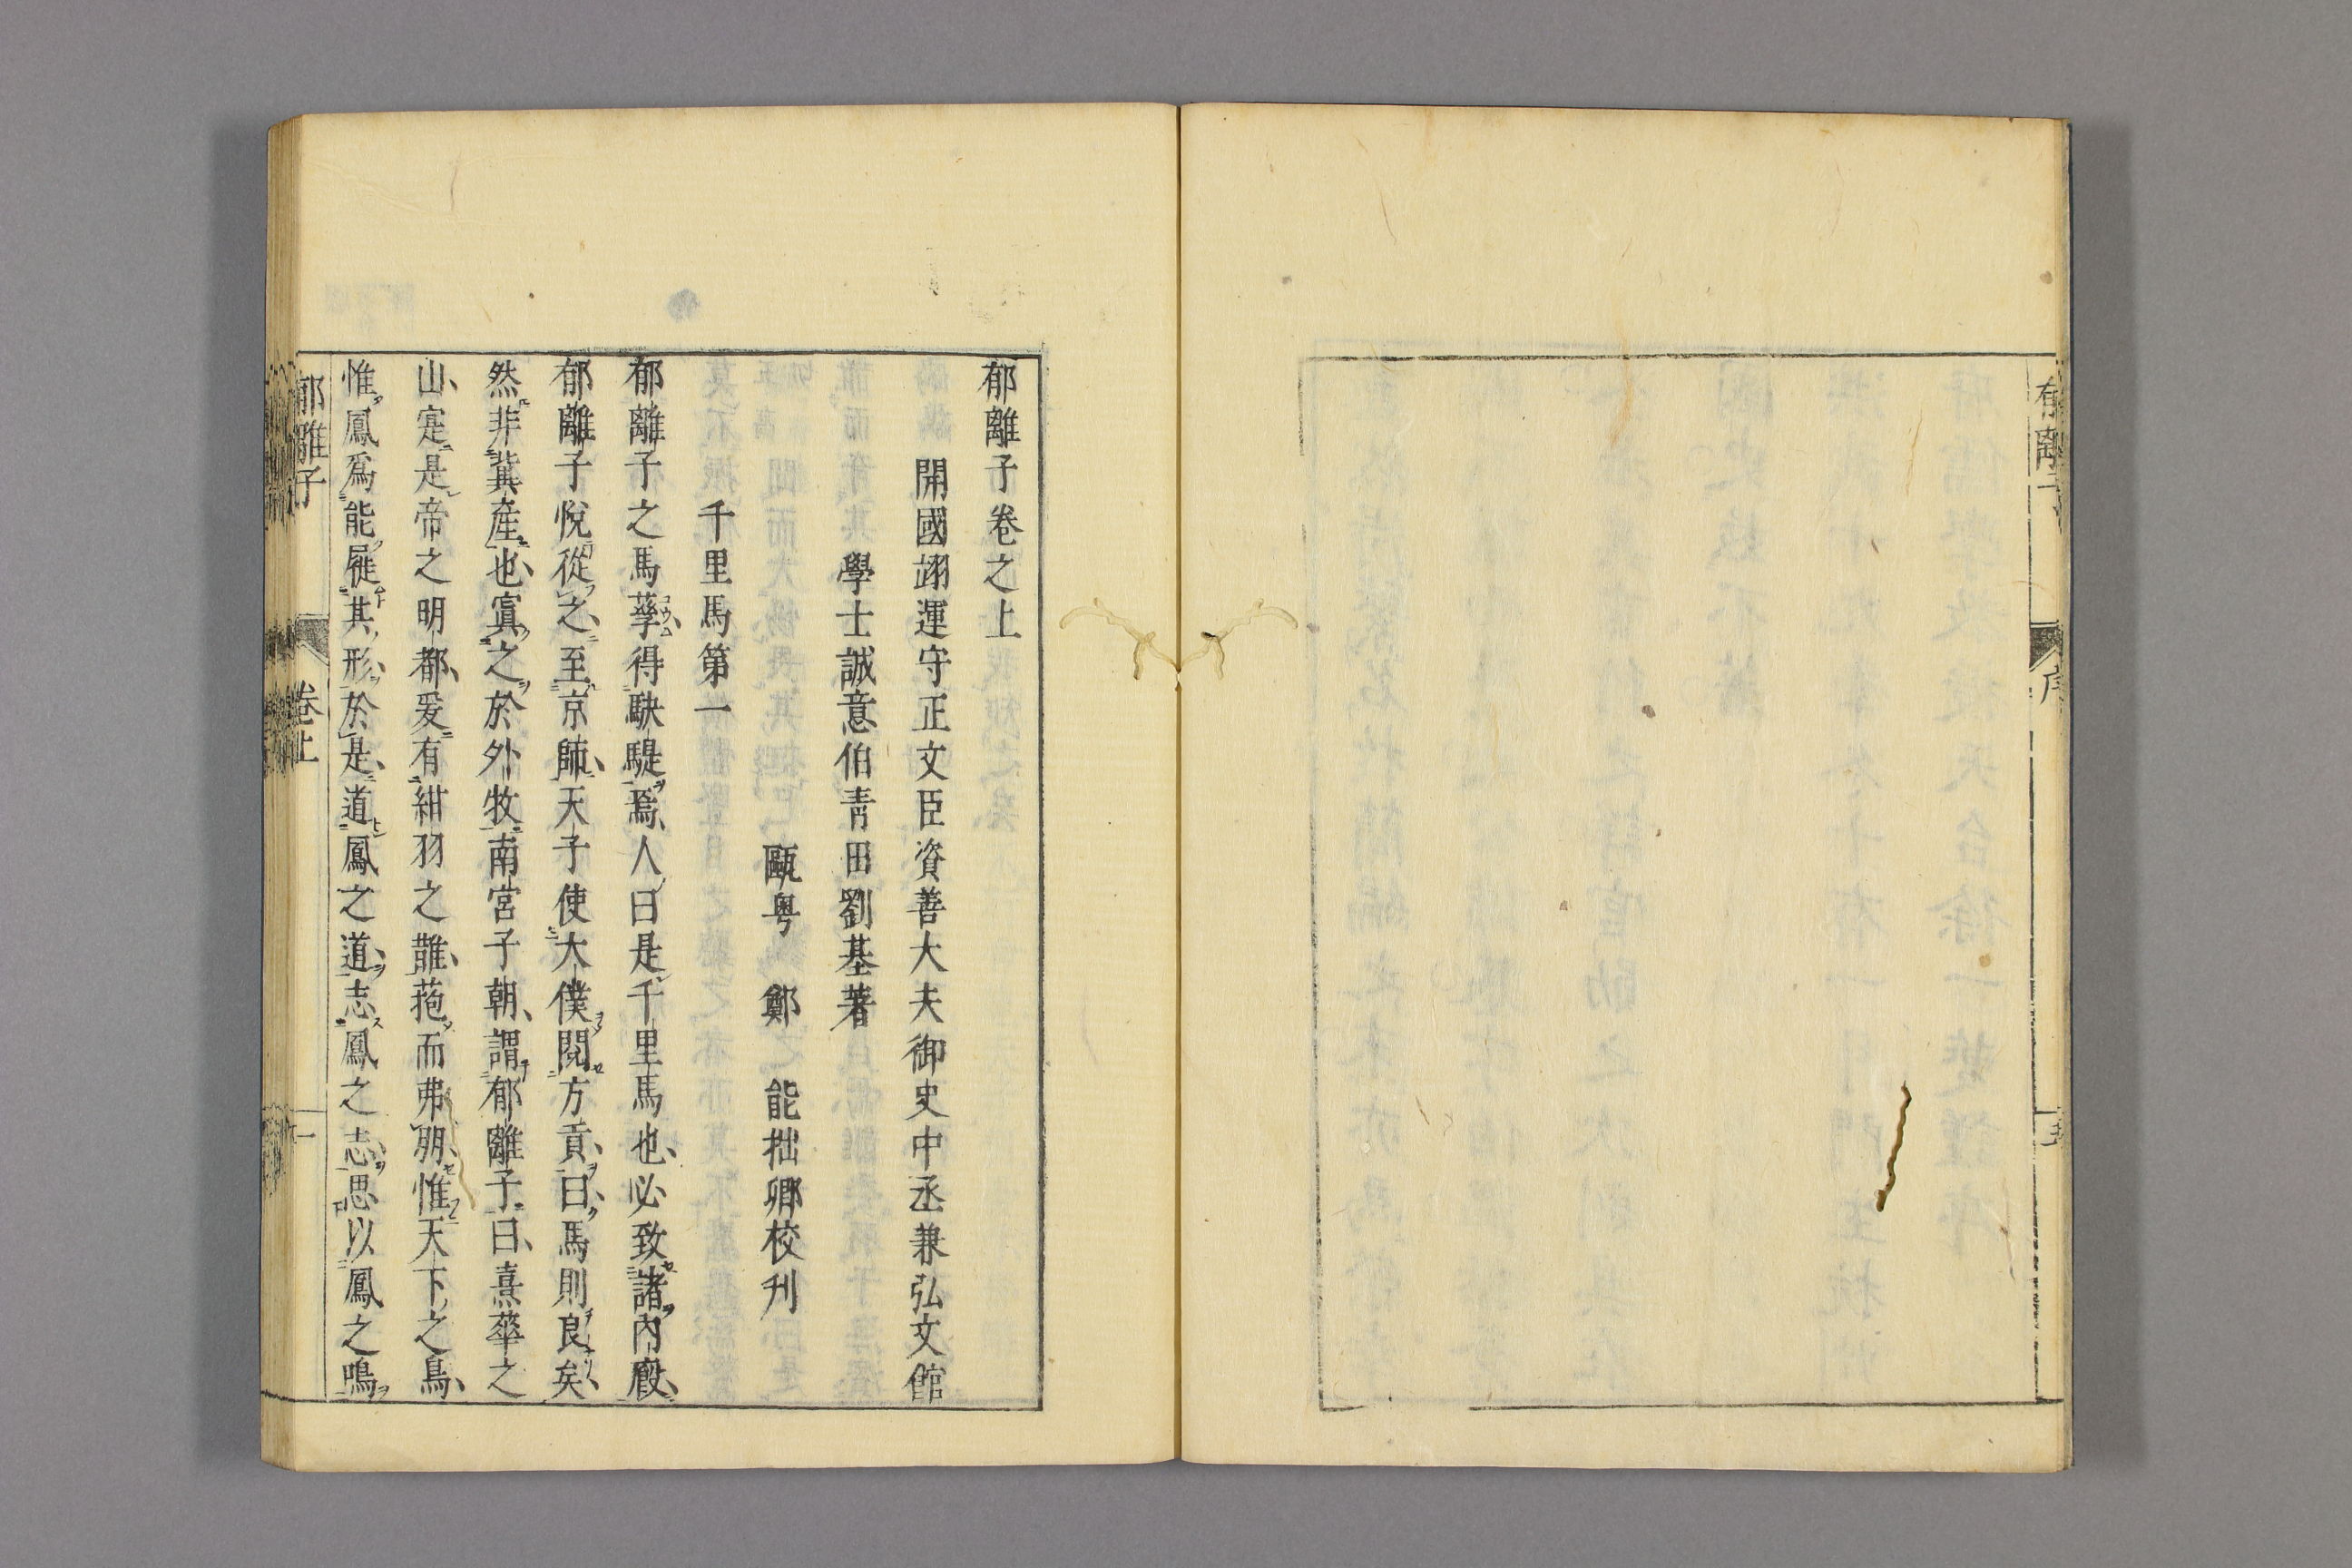 郁離子
序
郁離子卷之上
開國翊運守正文臣資善大夫御史中丞兼弘文館
學士誠意伯青田劉基著
甌粤 鄭 能拙卿校刋
千里馬第一
郁離子之馬孳得駃騠焉人曰是千里馬也必致諸內廐
郁離子悅從之至京師天子使大僕閱方貢曰馬則良矣
然非冀產也寘之於外牧南宮子朝謂郁離子曰熹華之
山寔是帝之明都爰有紺羽之鵲菢而弗朋惟天下之鳥
惟鳳爲能屣其形於是道鳳之道志鳳之志思以鳳之鳴
郁離子
卷上
一